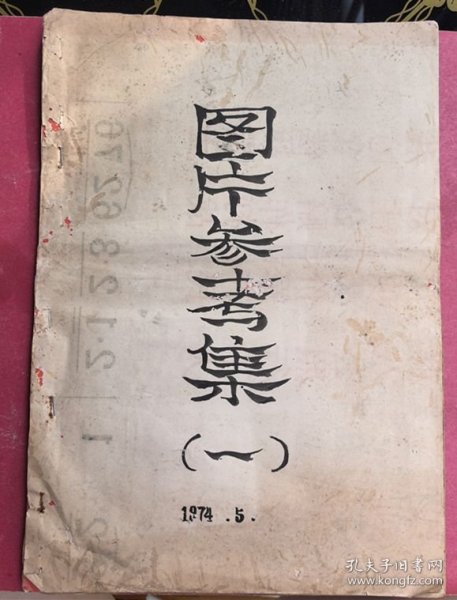 图片参考集
（一）
1974.5.
孔夫子旧书网
www.kongfz.com